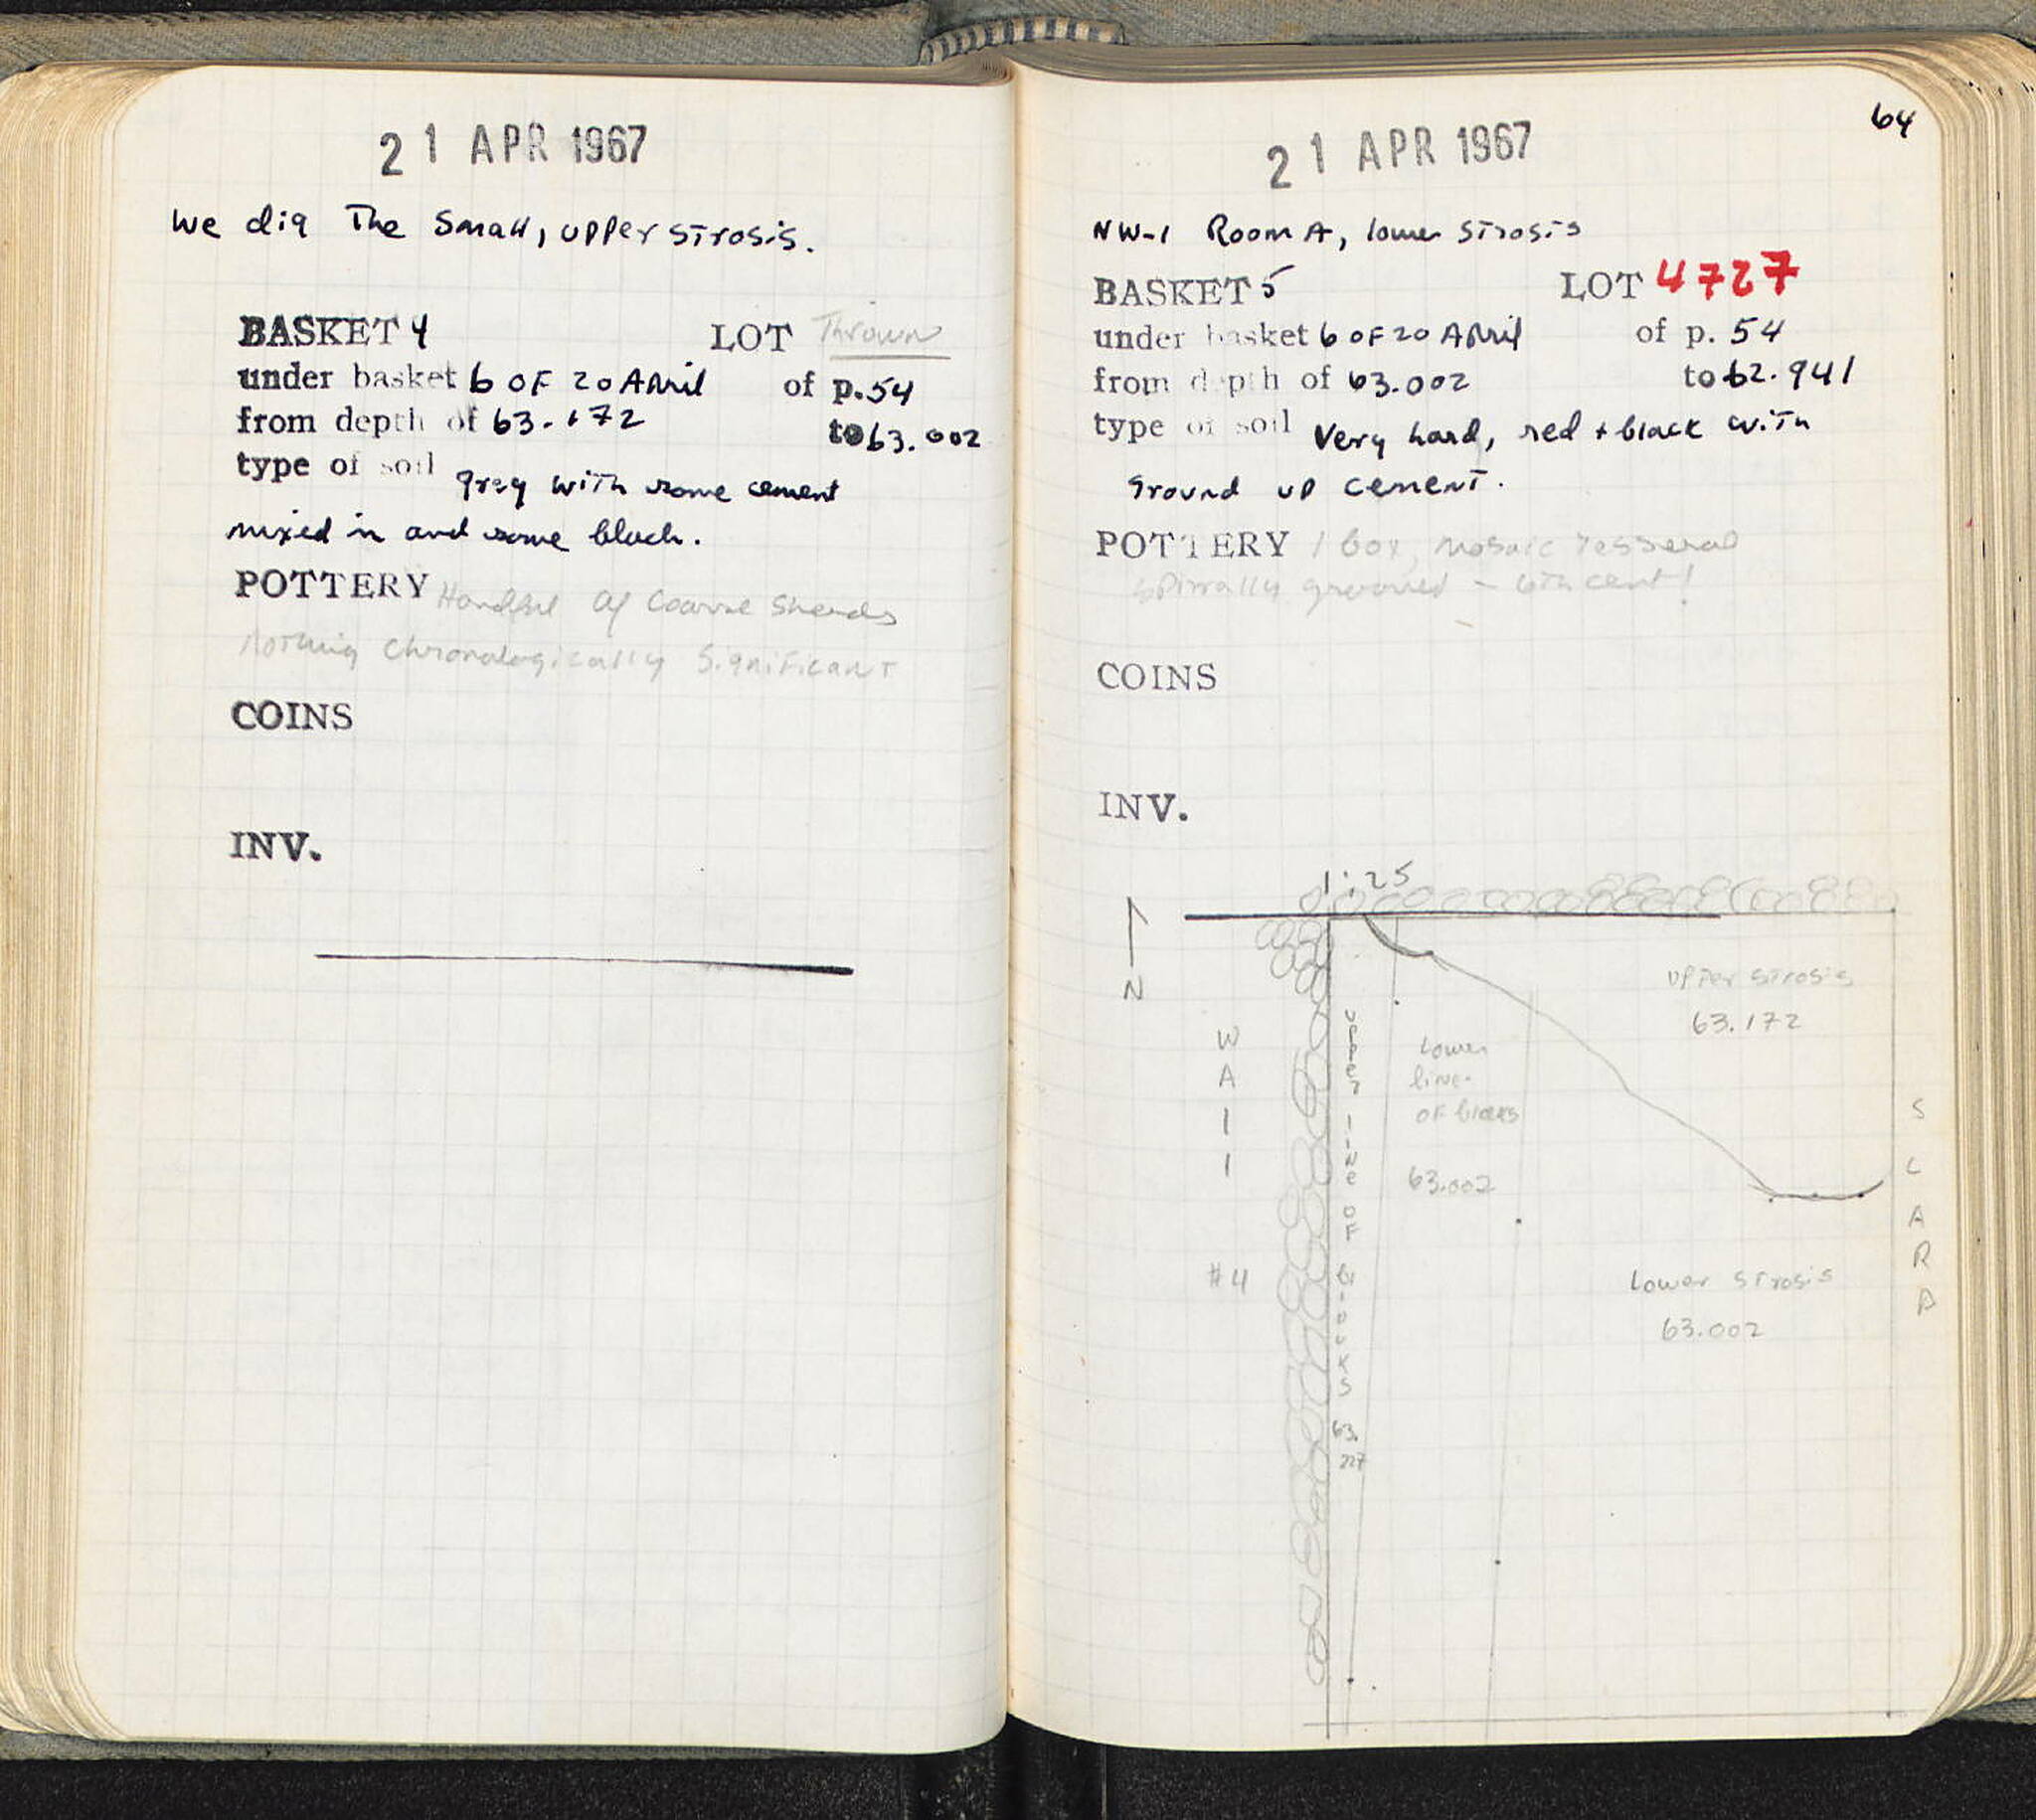 21 APR 1967
We dig The Small, upper strosis.
BASKET 4 LOT Thrown
under basket 6 OF 20 April of p. 54
from depth of 63.172 to 63.002
type of soil gray with some cement
mixed in and some black.
POTTERY Handful of Coarse Sherds
Nothing Chronologically Significant
COINS
INV.
64
21 APR 1967
NW-1 Room A, lower strosis
BASKET 5 LOT 4727
under basket 6 OF 20 April of p. 54
from depth of 63.002 to 62.941
type of soil Very hard, red + black with
ground up cement.
POTTERY 1 box, mosaic Tesserae
spirally grooved - 6th cent!
COINS
INV.
1:25
N
WAll
#4
upper line OF blocks
63.
Lower
line
OF blocks
63.002
upper strosis
63.172
Lower strosis
63.002
SCARP